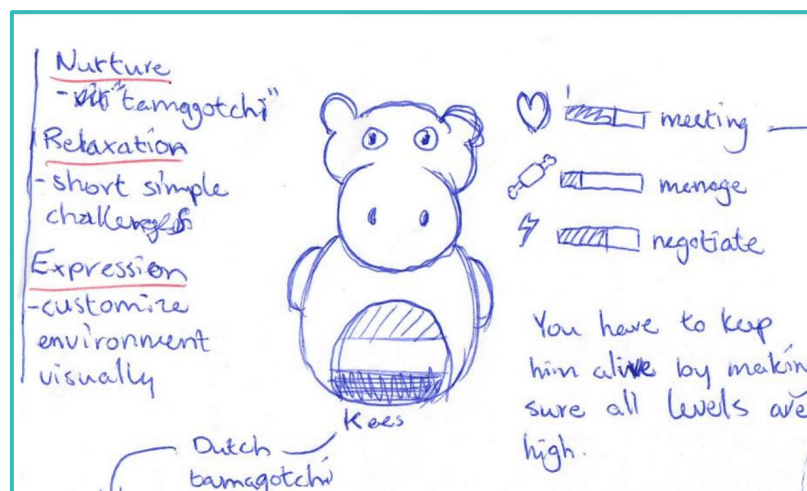 Nurture
- "tamagotchi"
Relaxation
- short simple
challenges
Expression
- customize
environment
visually
meeting
manage
negotiate
You have to keep
him alive by making
sure all levels are
high.
Kees
Dutch
tamagotchi